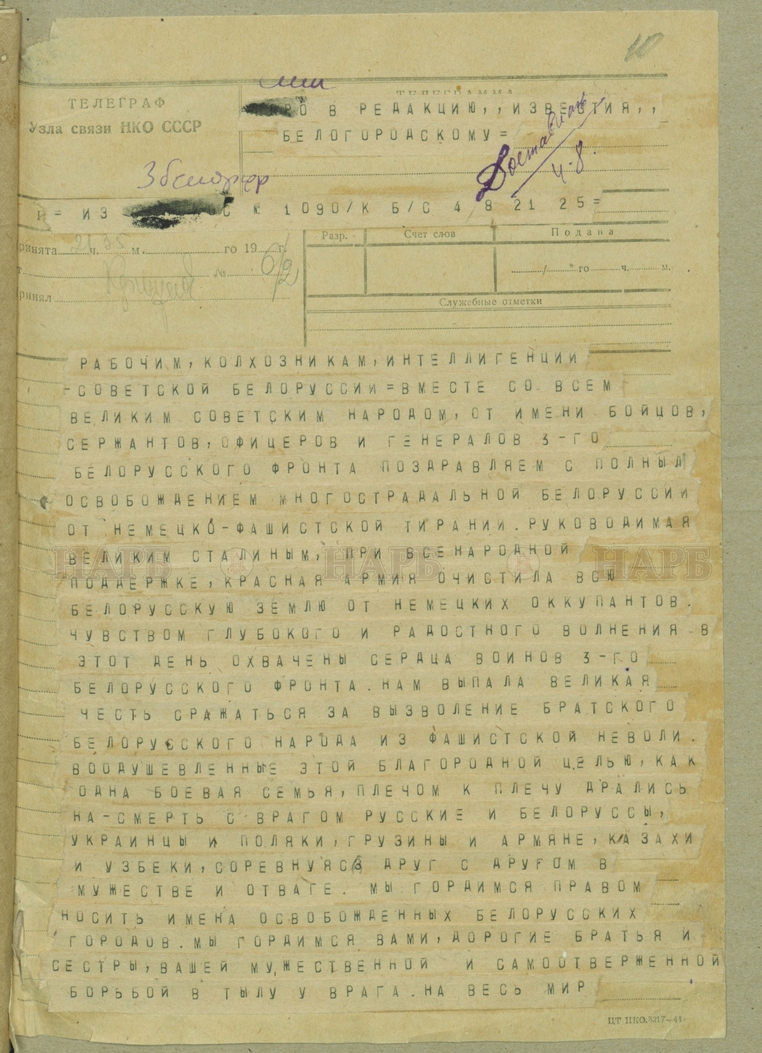 10
ТЕЛЕГРАФ
Узла связи НКО СССР
ТЕЛЕГРАММА
В РЕДАКЦИЮ,,ИЗВЕСТИЯ,,
БЕЛОГОРОДСКОМУ=
Доставить
4-8.
3 белорфр
ИЗ № 1090/К Б/С 4/8 21 25=
21 ч. 35 м. го 19 г.
№
Разр. Счет слов Подана
/ " го ч. м.
Служебные отметки
РАБОЧИМ,КОЛХОЗНИКАМ,ИНТЕЛЛИГЕНЦИИ
-СОВЕТСКОЙ БЕЛОРУССИИ=ВМЕСТЕ СО ВСЕМ
ВЕЛИКИМ СОВЕТСКИМ НАРОДОМ,ОТ ИМЕНИ БОЙЦОВ,
СЕРЖАНТОВ,ОФИЦЕРОВ И ГЕНЕРАЛОВ 3-ГО
БЕЛОРУССКОГО ФРОНТА ПОЗДРАВЛЯЕМ С ПОЛНЫМ
ОСВОБОЖДЕНИЕМ МНОГОСТРАДАЛЬНОЙ БЕЛОРУССИИ
ОТ НЕМЕЦКО-ФАШИСТСКОЙ ТИРАНИИ.РУКОВОДИМАЯ
ВЕЛИКИМ СТАЛИНЫМ, ПРИ ВСЕНАРОДНОЙ
ПОДДЕРЖКЕ,КРАСНАЯ АРМИЯ ОЧИСТИЛА ВСЮ
БЕЛОРУССКУЮ ЗЕМЛЮ ОТ НЕМЕЦКИХ ОККУПАНТОВ.
ЧУВСТВОМ ГЛУБОКОГО И РАДОСТНОГО ВОЛНЕНИЯ В
ЭТОТ ДЕНЬ ОХВАЧЕНЫ СЕРДЦА ВОИНОВ 3-ГО
БЕЛОРУССКОГО ФРОНТА.НАМ ВЫПАЛА ВЕЛИКАЯ
ЧЕСТЬ СРАЖАТЬСЯ ЗА ВЫЗВОЛЕНИЕ БРАТСКОГО
БЕЛОРУССКОГО НАРОДА ИЗ ФАШИСТСКОЙ НЕВОЛИ.
ВООДУШЕВЛЕННЫЕ ЭТОЙ БЛАГОРОДНОЙ ЦЕЛЬЮ,КАК
ОДНА БОЕВАЯ СЕМЬЯ,ПЛЕЧОМ К ПЛЕЧУ ДРАЛИСЬ
НА-СМЕРТЬ С ВРАГОМ РУССКИЕ И БЕЛОРУССЫ,
УКРАИНЦЫ И ПОЛЯКИ,ГРУЗИНЫ И АРМЯНЕ,КАЗАХИ
И УЗБЕКИ,СОРЕВНУЯСЬ ДРУГ С ДРУГОМ В
МУЖЕСТВЕ И ОТВАГЕ. МЫ ГОРДИМСЯ ПРАВОМ
НОСИТЬ ИМЕНА ОСВОБОЖДЕННЫХ БЕЛОРУССКИХ
ГОРОДОВ.МЫ ГОРДИМСЯ ВАМИ,ДОРОГИЕ БРАТЬЯ И
СЕСТРЫ,ВАШЕЙ МУЖЕСТВЕННОЙ И САМООТВЕРЖЕННОЙ
БОРЬБОЙ В ТЫЛУ У ВРАГА.НА ВЕСЬ МИР
НАРБ НАРБ НАРБ